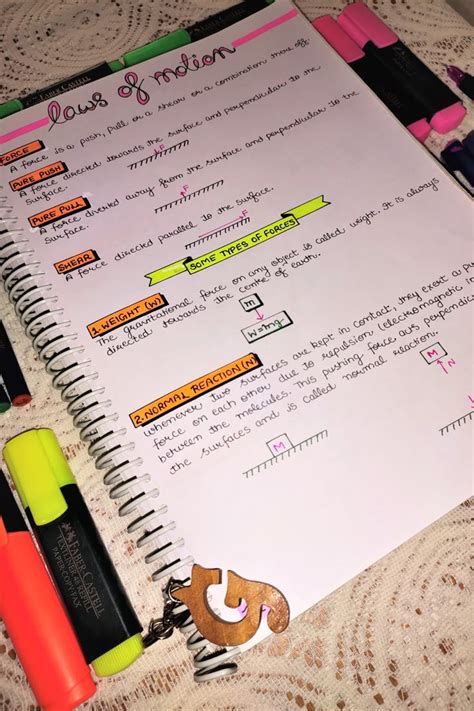 FABER-CASTELL
Laws of motion
FORCE
A force is a push, pull or a shear or a combination more of.
PURE PUSH
A force directed towards the surface and perpendicular to the
surface.
F
PURE PULL
A force directed away from the surface and perpendicular to the
surface.
F
SHEAR
A force directed parallel to the surface.
F
SOME TYPES OF FORCES
1. WEIGHT (W)
The gravitational force on any object is called weight. It is always
directed towards the centre of earth.
m
W=mg
2. NORMAL REACTION (N)
Whenever two surfaces are kept in contact they exert a
force on each other due to repulsion (electromagnetic
between the molecules. This pushing force acts
the surfaces and is called normal reaction.
M
N
M
FABER-CASTELL
TEXTLINER 48 REFILL
PAPER·COPY·FAX